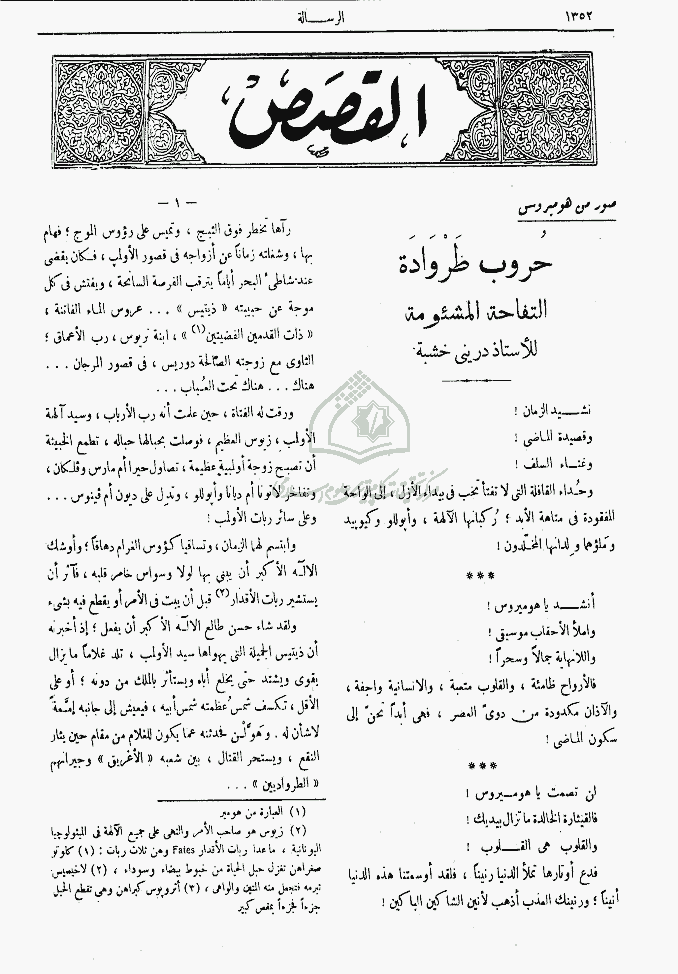 ١٣٥٢
الرســـالة
القصص
صور من هوميروس
حُروب طَرْوَادَة
التفاحة المشئومة
للأستاذ دريني خشبة
نشــيد الزمان !
وقصيدة المـاضى !
وغنــاء السلف !
وحُداء القافلة التى لا تفتأ تخب فى بيداء الأزل ، إلى الواحة
المفقودة فى متاهة الأبد ؛ رُكبانها الآلهة ، وأپوللو وكيوپيد
وملؤهما ولدانها المخلدون !
***
أنشــد يا هوميروس !
واملأ الأحقاب موسيقى !
واللانهاية جمالاً وسحراً !
فالأرواح ظامئة ، والقلوب متعبة ، والانسانية واجفة ،
والآذان مكدودة من دوىّ العصر ، فهى أبداً تحنّ إلى
سكون الماضى !
***
لن تصمت يا هوميروس !
فالقيثارة الخالدة ما تزال بيديك !
والقلوب هى القــلوب !
فدع أوتارها تملأ الدنيا رنيناً ، فلقد أوسعتنا هذه الدنيا
أنيناً ؛ ورنينك العذب أذهب لأنين الشاكين الباكين !
— ١ —
رآها تخطر فوق الثبج ، وتميس على رؤوس الموج ؛ فهام
بها ، وشغلته زماناً عن أزواجه فى قصور الأولمپ ، فكان يقضى
عند شاطئ البحر أياماً يترقب الفرصة السانحة ، ويفتش فى كل
موجة عن حبيبته « ذيتيس » ... عروس الماء الفاتنة ،
« ذات القدمين الفضيتين (١) » ، ابنة نريوس ، رب الأعماق ؛
الثاوى مع زوجته الصالحة دوريس ، فى قصور المرجان ...
هناك ... هناك تحت العُباب ...
ورقت له الفتاة ، حين علمت أنه رب الأرباب ، وسيد آلهة
الأولمب ، زيوس العظيم ، فوصلت بحبالها حباله ، تطمع الخبيثة
أن تصبح زوجة أولمبية عظيمة ، تصاول حيرا أم مارس وڤلكان ،
وتفاخر لاتونا أم ديانا وأپوللو ، وتدل على ديون أم ڤينوس ...
وعلى سائر ربات الأولمب !
وابتسم لهما الزمان ، وتساقيا كؤوس الغرام دهاقاً ؛ وأوشك
الالٓه الأكبر أن يبنى بها لولا وسواس خامر قلبه ، فآثر أن
يستشير ربات الأقدار (٢) قبل أن يبت فى الأمر أو يقطع فيه بشىء
ولقد شاء حسن طالع الالٓه الأكبر أن يفعل ؛ إذ أخبرنه
أن ذيتيس الجميلة التى يهواها سيد الأولمب ، تلد غلاماً ما يزال
يقوى ويشتد حتى يخلع أباه ويستأثر بالملك من دونه ؛ أو على
الأقل ، تكسف شمسُ عظمته شمسَ أبيه ، فيعيش إلى جانبه إمّعةً
لا شأن له . وهوَّلن فحدثنه عما يكون للغلام من مقام حين يثار
النقع ، ويستحر القتال ، بين شعبه « الأغريق » وجيرانهم
« الطرواديين » ...
(١) العبارة من هومير
(٢) زيوس هو صاحب الأمر والنهى على جميع الآلهة فى الميثولوجيا
اليونانية ، ماعدا ربات الأقدار Fates وهن ثلاث ربات : (١) كلوتو
صغراهن تغزل حبل الحياة من خيوط بيضاء وسوداء ، (٢) لاخيسيس
تبرمه فتجعل منه المتين والواهى ، (٣) أتروپوس كبراهن وهى تقطع الحبل
جزءاً فجزءاً بمقص كبير